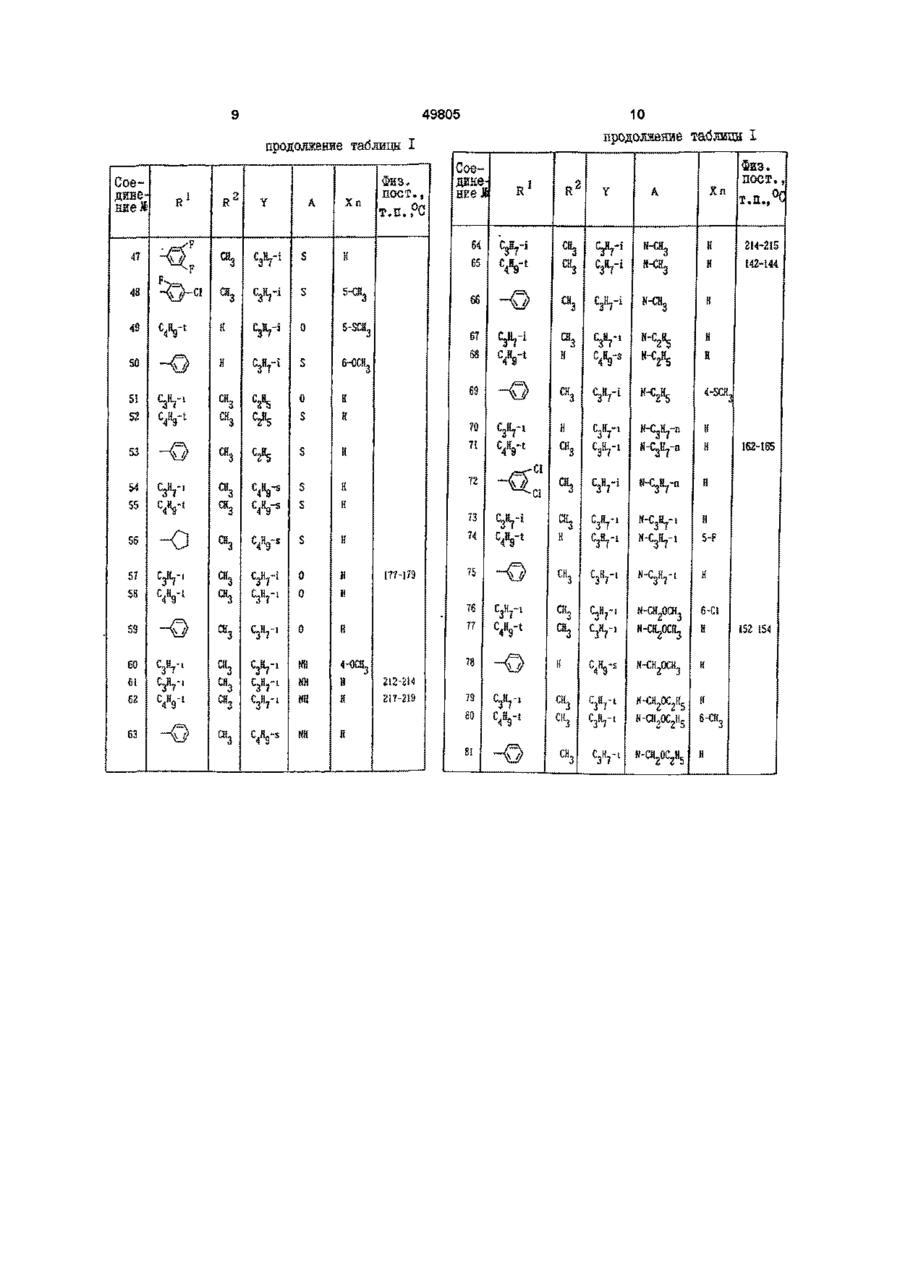 9
49805
10
продолжение таблицы I
Сое-дине-ние № R1 R2 Y A Xn Физ. пост., т.п.,°C
47 F F CH3 C3H7-i S H
48 F Cl CH3 C3H7-i S 5-CH3
49 C4H9-t H C3H7-i O 5-SCH3
50 H C3H7-i S 6-OCH3
51 C3H7-i CH3 C2H5 O H
52 C4H9-t CH3 C2H5 S H
53 CH3 C2H5 S H
54 C3H7-i CH3 C4H9-s S H
55 C4H9-t CH3 C4H9-s S H
56 CH3 C4H9-s S H
57 C3H7-i CH3 C3H7-i O H 177-179
58 C4H9-t CH3 C3H7-i O H
59 CH3 C3H7-i O H
60 C3H7-i CH3 C3H7-i NH 4-OCH3
61 C3H7-i CH3 C3H7-i NH H 212-214
62 C4H9-t CH3 C3H7-i NH H 217-219
63 CH3 C4H9-s NH H
продолжение таблицы I
Сое-дине-ние № R1 R2 Y A Xn Физ. пост., т.п.,°C
64 C3H7-i CH3 C3H7-i N-CH3 H 214-215
65 C4H9-t CH3 C3H7-i N-CH3 H 142-144
66 CH3 C3H7-i N-CH3 H
67 C3H7-i CH3 C3H7-i N-C2H5 H
68 C4H9-t H C4H9-s N-C2H5 H
69 CH3 C3H7-i N-C2H5 4-SCH3
70 C3H7-i H C3H7-i N-C3H7-n H
71 C4H9-t CH3 C3H7-i N-C3H7-n H 162-165
72 Cl Cl CH3 C3H7-i N-C3H7-n H
73 C3H7-i CH3 C3H7-i N-C3H7-i H
74 C4H9-t H C3H7-i N-C3H7-i 5-F
75 CH3 C3H7-i N-C3H7-i H
76 C3H7-i CH3 C3H7-i N-CH2OCH3 6-Cl
77 C4H9-t CH3 C3H7-i N-CH2OCH3 H 152 154
78 H C4H9-s N-CH2OCH3 H
79 C3H7-i CH3 C3H7-i N-CH2OC2H5 H
80 C4H9-t CH3 C3H7-i N-CH2OC2H5 6-CH3
81 CH3 C3H7-i N-CH2OC2H5 H